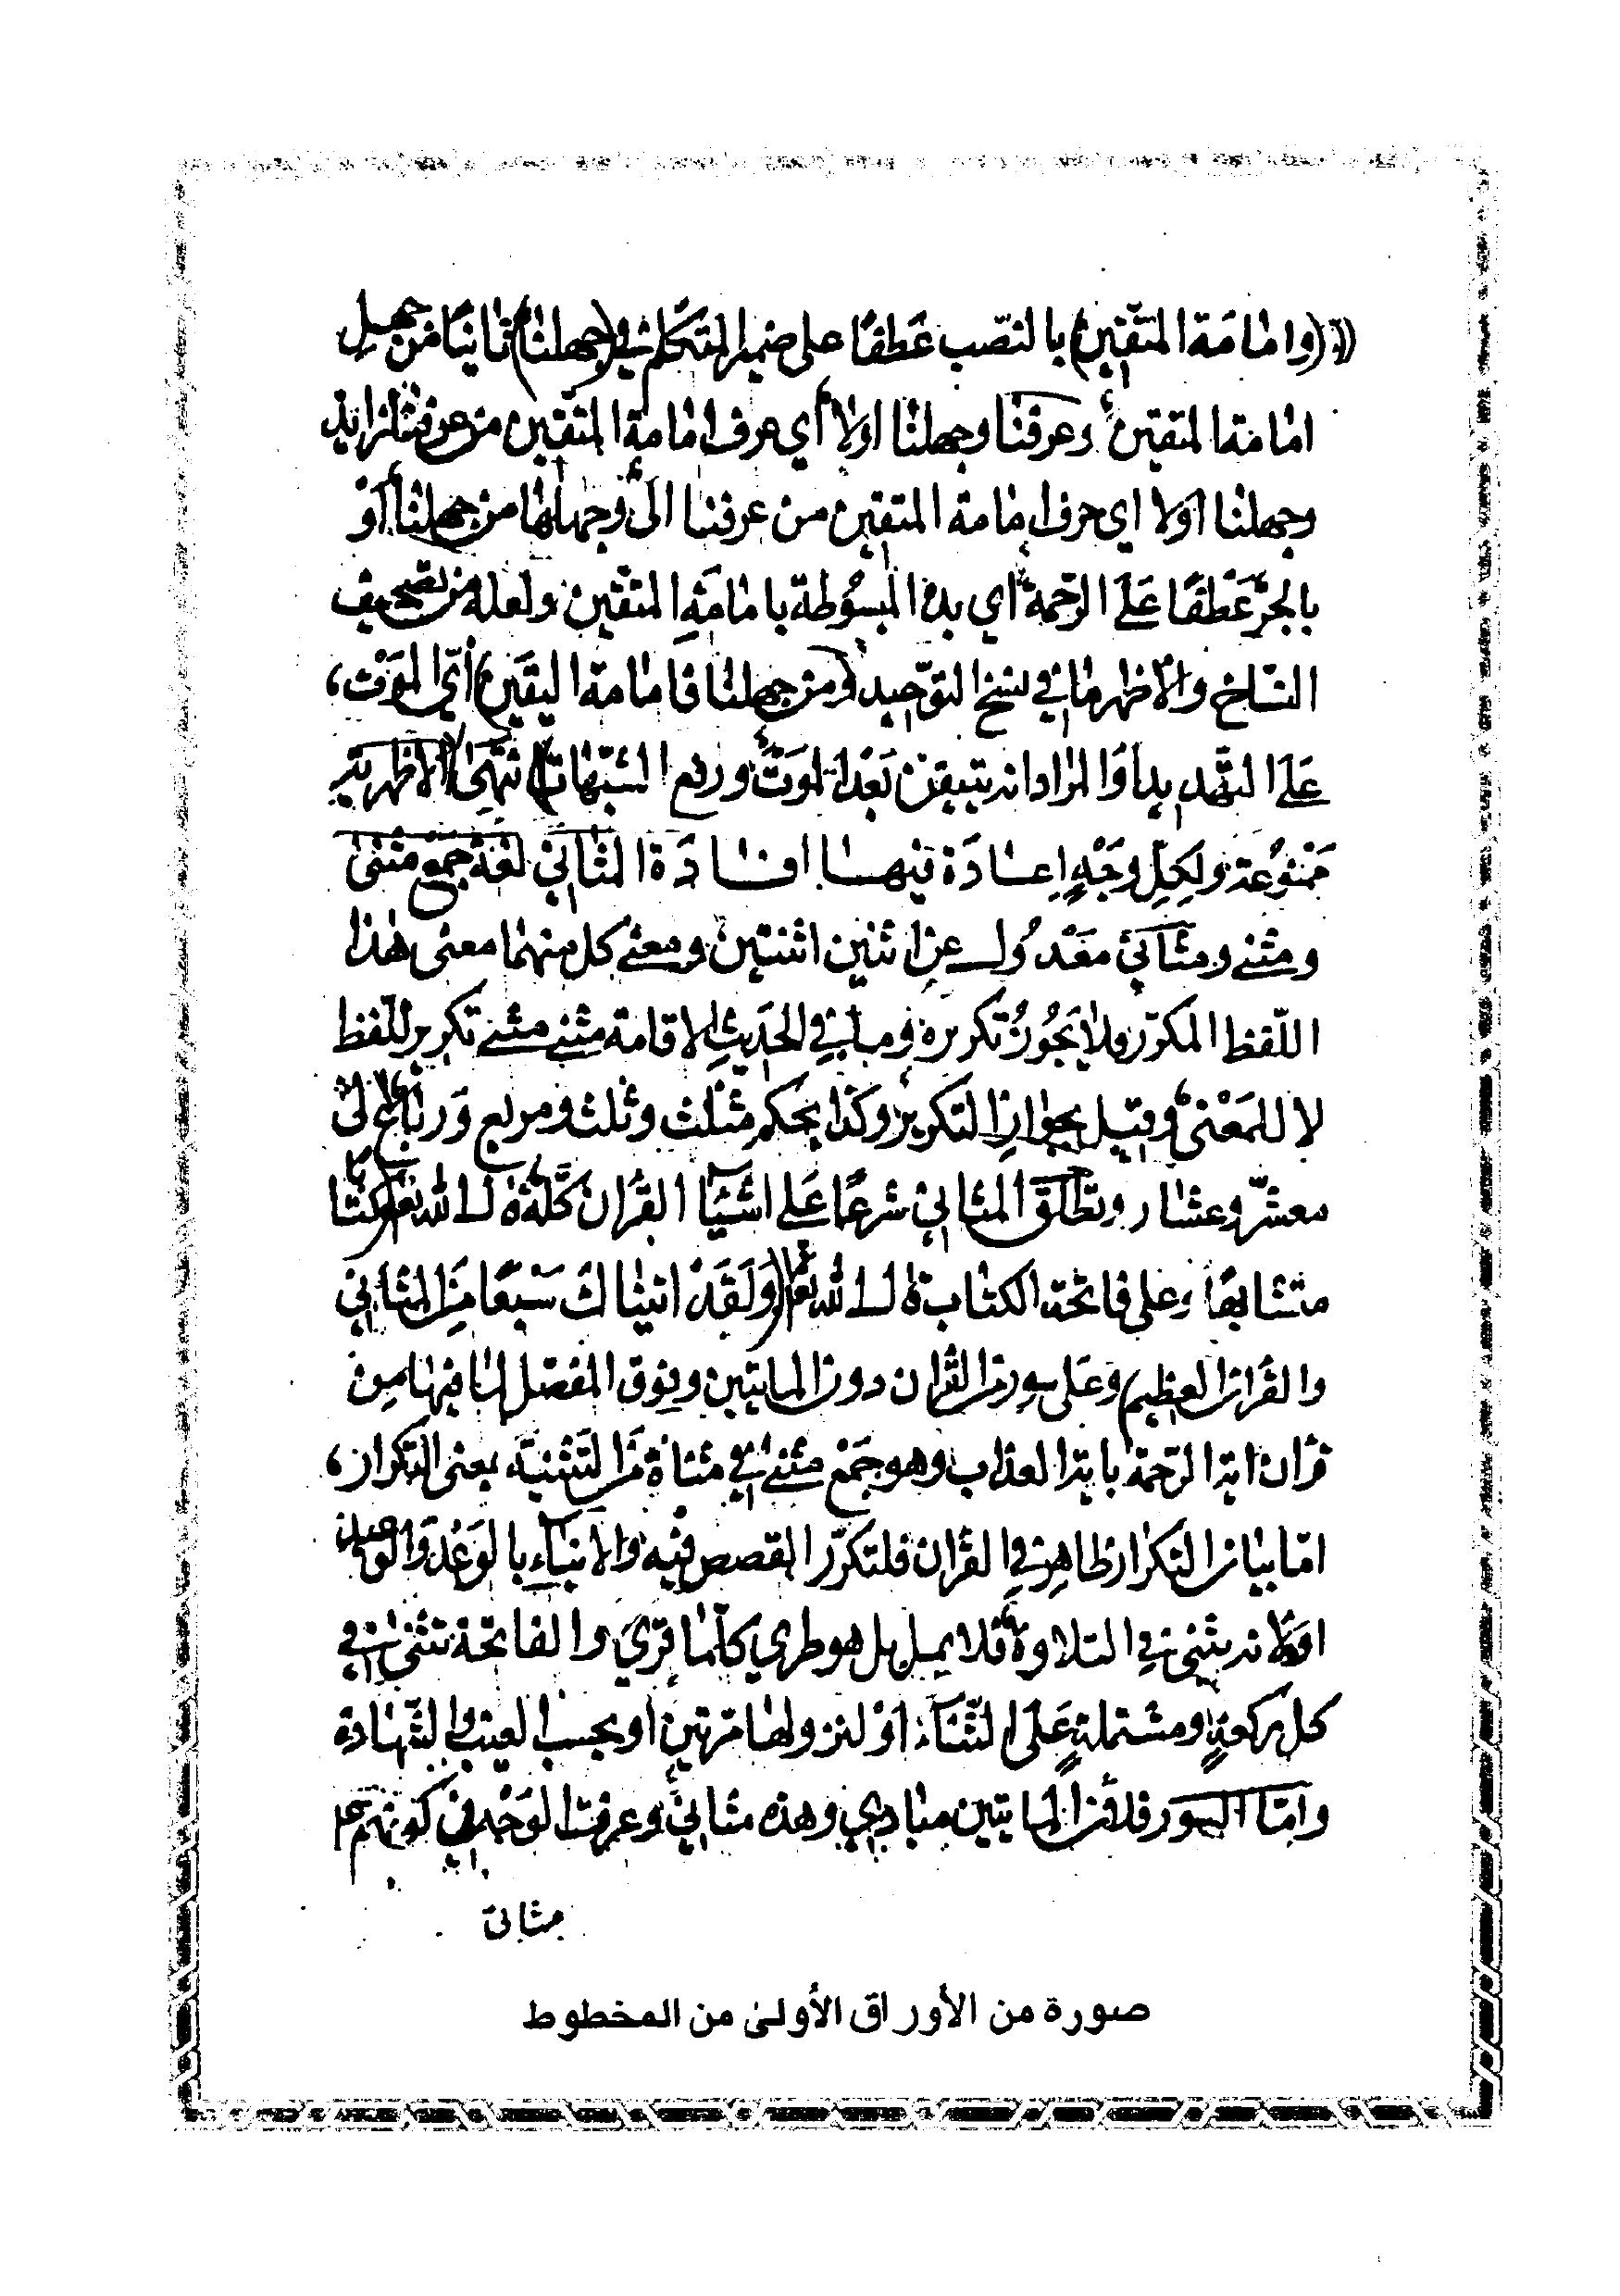 (وامامة المتقين) بالنصب عطفا على ضمير المتكلم في (جهلنا) ثانيا من جهل
امامة المتقين وعرفنا وجهلنا اولا أي عرف امامة المتقين من عرفنا
وجهلنا اولا اي عرف امامة المتقين من عرفنا الى وجهلها من جهلنا أو
بالجر عطفا على الرحمة أي يده المبسوطة بامامة المتقين ولعله من تصحيف
النساخ والاظهر ما في نسخ التوحيد (ومن جهلنا فامامه اليقين) أي الموت،
على التهديد او المراد انه يتيقن بعد الموت ورفع الشبهات انتهى الاظهرية
ممنوعة ولكل وجه اعادة فيها افادة المثاني لغة جمع مثنى
ومثنى ومثاني معدول عن اثنين اثنتين ومعنى كل منهما معنى هذا
اللفظ المكرر ولا يجوز تكريره وما في الحديث الاقامة مثنى مثنى تكرير للفظ
لا للمعنى وقيل بجواز التكرير وكذا بحكم مثلث وثلث ومربع ورباع الى
معشر وعشار وتطلق المثاني شرعا على اشيآ القرآن كله قال الله تعالى (كتابا
متشابها) وعلى فاتحة الكتاب قال الله تعالى (ولقد اتيناك سبعا من المثاني
والقرآن العظيم) وعلى سورة القرآن دون المايتين وفوق المفصل لما فيها من
قران اية الرحمة باية العذاب وهو جمع مثنى او مثناة من التثنية بمعنى التكرار،
اما بيان التكرار ظاهر في القرآن فلتكرر القصص فيه والانبآء بالوعد والوعيد
او لانه يثنى في التلاوة فلا يمل بل هو طري كلما قرئ والفاتحة تثنى في
كل ركعة ومشتملة على الثنآء او لنزولها مرتين او بحسب الغيب والشهادة
وامّا السور فلان المايتين مبادي وهذه مثاني وعرفت الوجه في كونهم ع
مثانى
صورة من الأوراق الأولىٰ من المخطوط